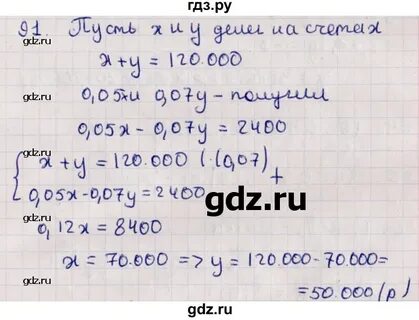 гдз.ру
91. Пусть x и y денег на счетах
x+y=120.000
0,05x и 0,07y - получил
0,05x - 0,07y = 2400
{ x+y = 120.000 (·(0,07)
0,05x-0,07y = 2400 +
0,12x = 8400
x = 70.000 => y = 120.000-70.000=
=50.000 (р)
gdz.ru
gdz.ru
gdz.ru
gdz.ru
gdz.ru
gdz.ru
gdz.ru